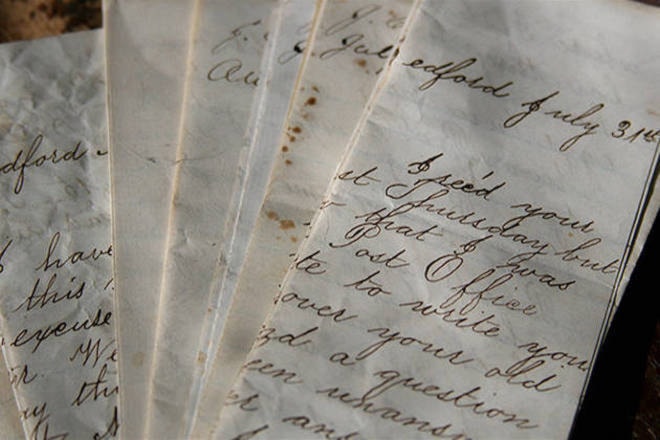 dford
I have
this
excuse
r. We
my thi
J.
Au
J.
Jul
edford July 31st
I rec'd your
st Thursday but
that I was
Post Office
te to write you
over your old
ed a question
een unansw
er an